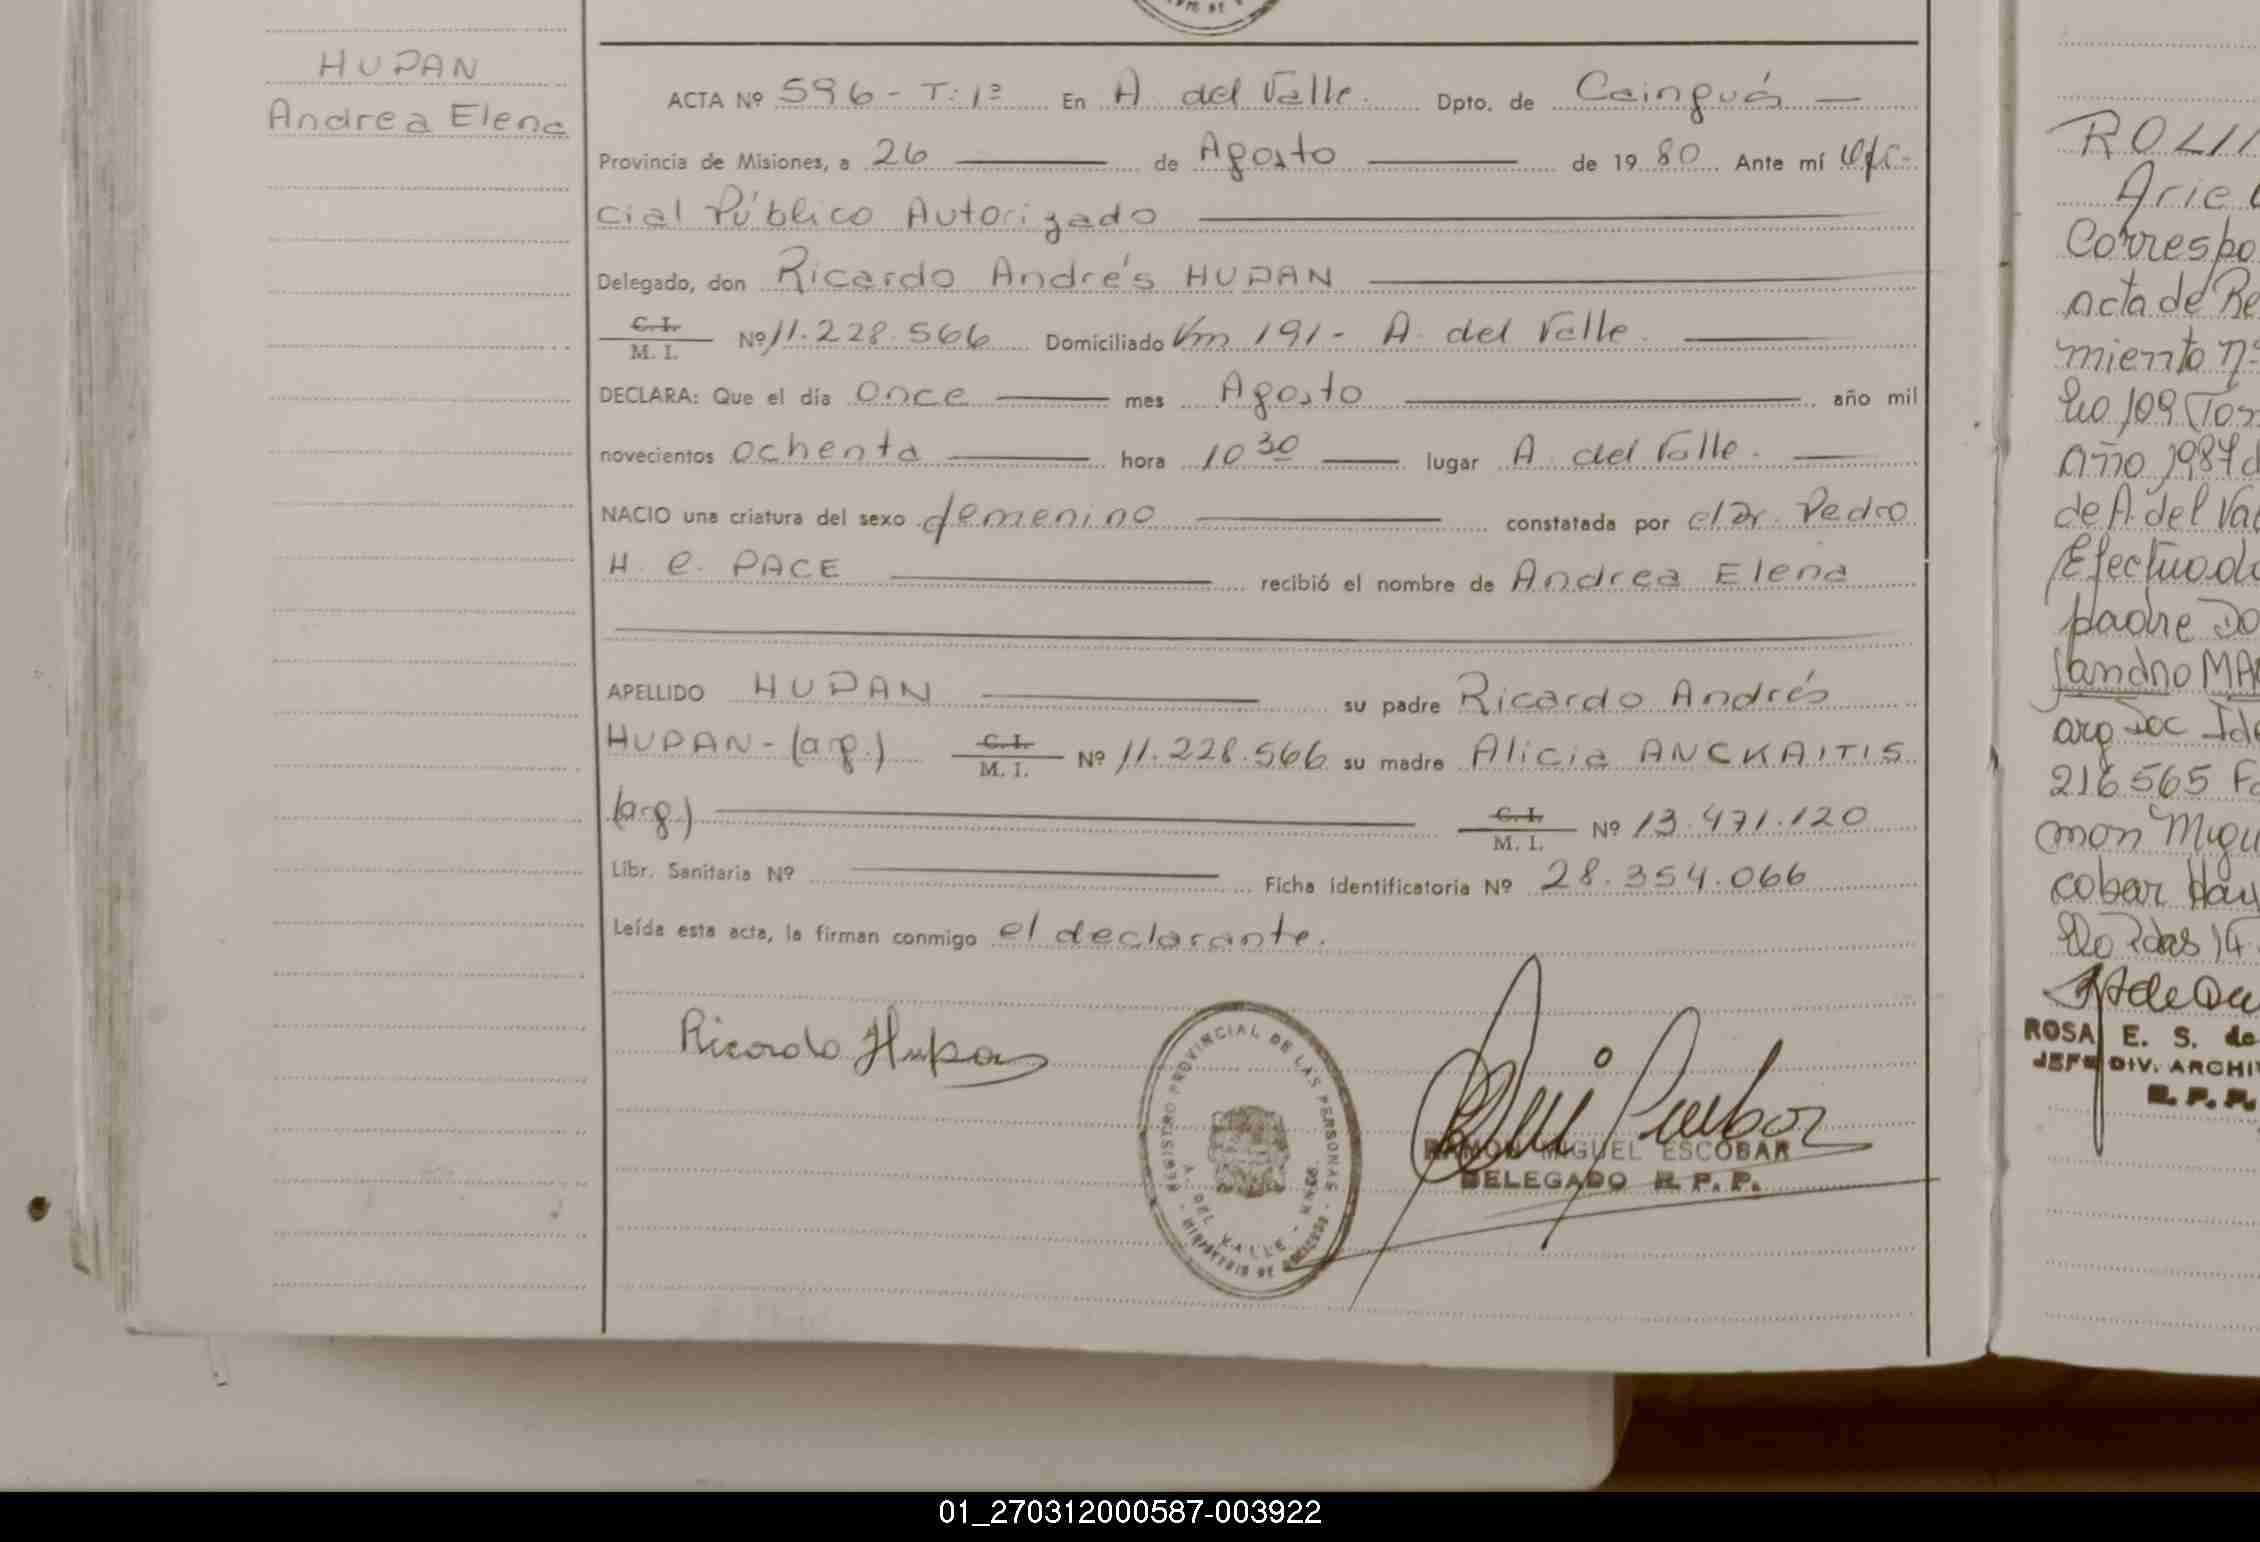 HUPAN
Andrea Elena
ACTA Nº 596 - T: 1º En A. del Valle. Dpto. de Cainguás —
Provincia de Misiones, a 26 de Agosto de 1980. Ante mí Ofi-
cial Público Autorizado
Delegado, don Ricardo Andrés HUPAN
C. I.
M. I. Nº 11.228.566 Domiciliado Km 191 - A. del Valle.
DECLARA: Que el día once mes Agosto año mil
novecientos ochenta hora 10 30 lugar A. del Valle.
NACIO una criatura del sexo femenino constatada por el Dr. Pedro
H. C. PACE recibió el nombre de Andrea Elena
APELLIDO HUPAN su padre Ricardo Andrés
HUPAN - (arg.) C. I. M. I. Nº 11.228.566 su madre Alicia ANCKAITIS
(arg.) C. I. M. I. Nº 13.471.120
Libr. Sanitaria Nº Ficha identificatoria Nº 28.354.066
Leída esta acta, la firman conmigo el declarante.
Ricardo Hupan
REGISTRO PROVINCIAL DE LAS PERSONAS
A. DEL VALLE - MNES.
RAMON MIGUEL ESCOBAR
DELEGADO R. P. P.
ROLI
Arie
Correspo
acta de Re
miento nº
lio 109 Tom
Año 1987 d
de A. del Val
Efectuado
padre Do
jandro MA
arg Doc Ide
216565 Fo
mon Migu
cobar Hay
ROSA E. S. de
JEFE DIV. ARCHI
R. P. P.
01_270312000587-003922